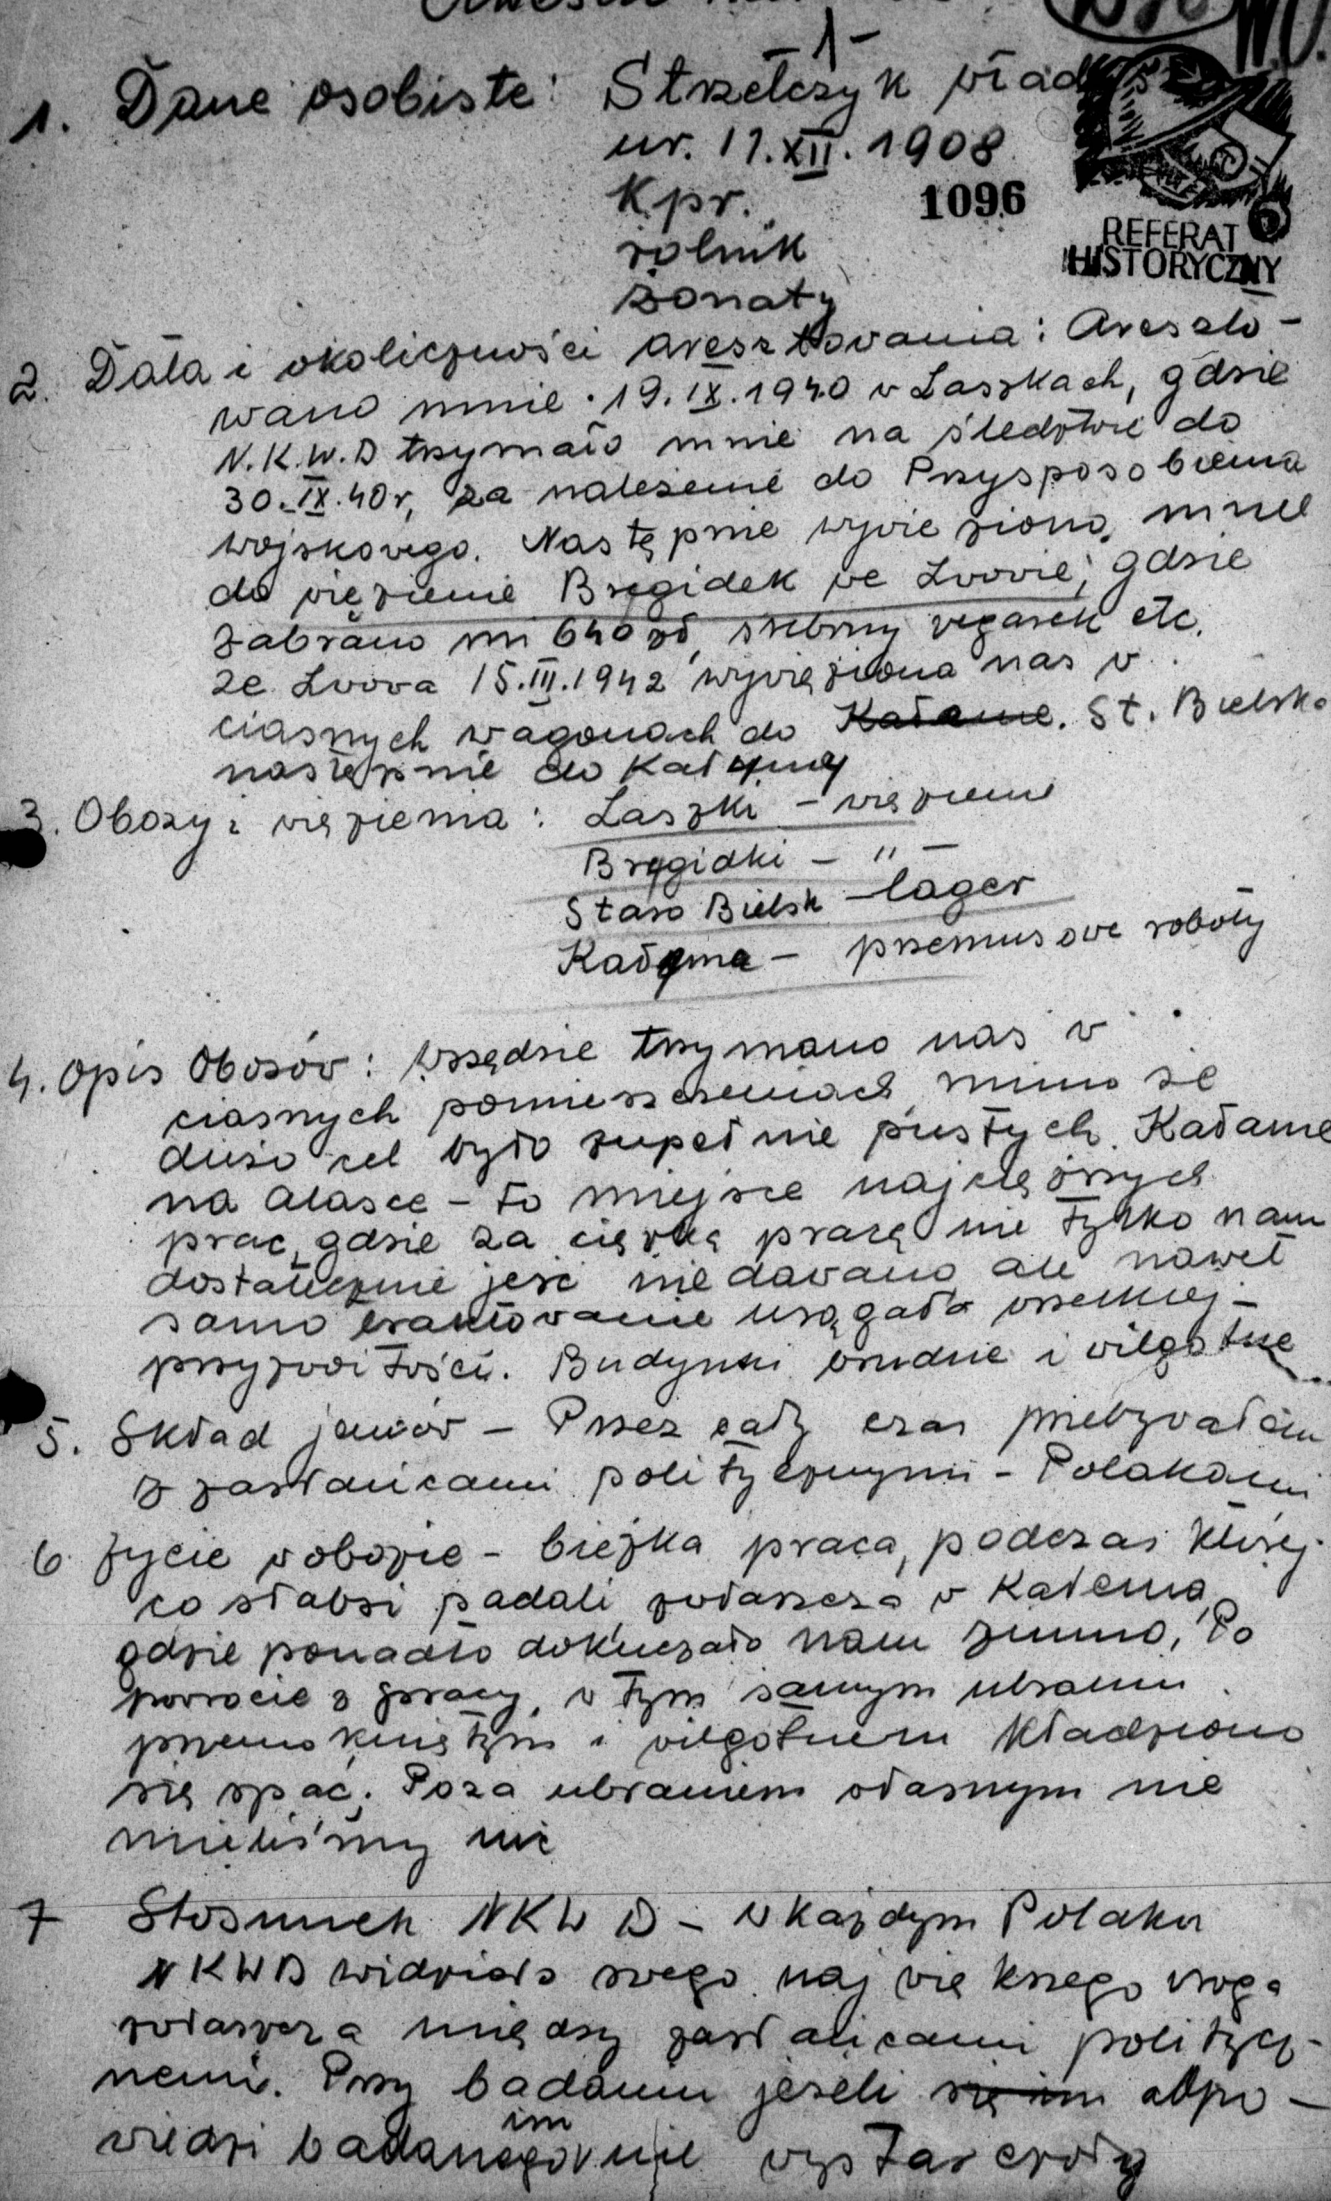 -1-
1. Dane osobiste: Strzelczyk Wład
ur. 17.XII.1908
1096
Kpr.
rolnik
REFERAT
HISTORYCZNY
żonaty
2. Data i okoliczności aresztowania: Areszto-
wano mnie 19.IX.1940 w Laszkach, gdzie
N.K.W.D trzymało mnie na śledztwie do
30.IX.40r, za należenie do Przysposobienia
wojskowego. Następnie wywieziono mnie
do więzienie Brygidek we Lwowie, gdzie
zabrano mi 640 zł, srebrny zegarek etc.
ze Lwowa 15.III.1942 wywieziono nas w
ciasnych wagonach do St. Bielska
następnie do Kałymy
3. Obozy i więzienia: Laszki - więzienie
Brygidki - " -
Staro Bielsk - lager
Kałyma - przemusowe roboty
4. Opis Obozów: Wszędzie trzymano nas w
ciasnych pomieszczeniach mimo że
dużo cel było zupełnie pustych. Kałame
na Alasce - to miejsce najcięższych
prac, gdzie za ciężką pracę nie tylko nam
dostatecznie jeść nie dawano ale nawet
samo traktowanie urągało wszelkiej-
przyzwoitości. Budynki brudne i wilgotne
5. Skład jeńców - Przez cały czas przebywałem
z zasłańcami politycznymi - Polakami
6 Życie w obozie - Ciężka praca, podczas której
co słabsi padali zwłaszcza w Kałemą,
gdzie ponadto dokuczało nam zimno. Po
powrocie z pracy, w tym samym ubraniu
przemokniętym i wilgotnem kładziono
się spać. Poza ubraniem własnym nie
mieliśmy nic
7 Stosunek NKWD - W każdym Polaku
NKWD widziało swego największego wroga
zwłaszcza między zasłańcami politycz-
nemi. Przy badaniu jeżeli odpo-
wiedzi badanego im nie wystarczały